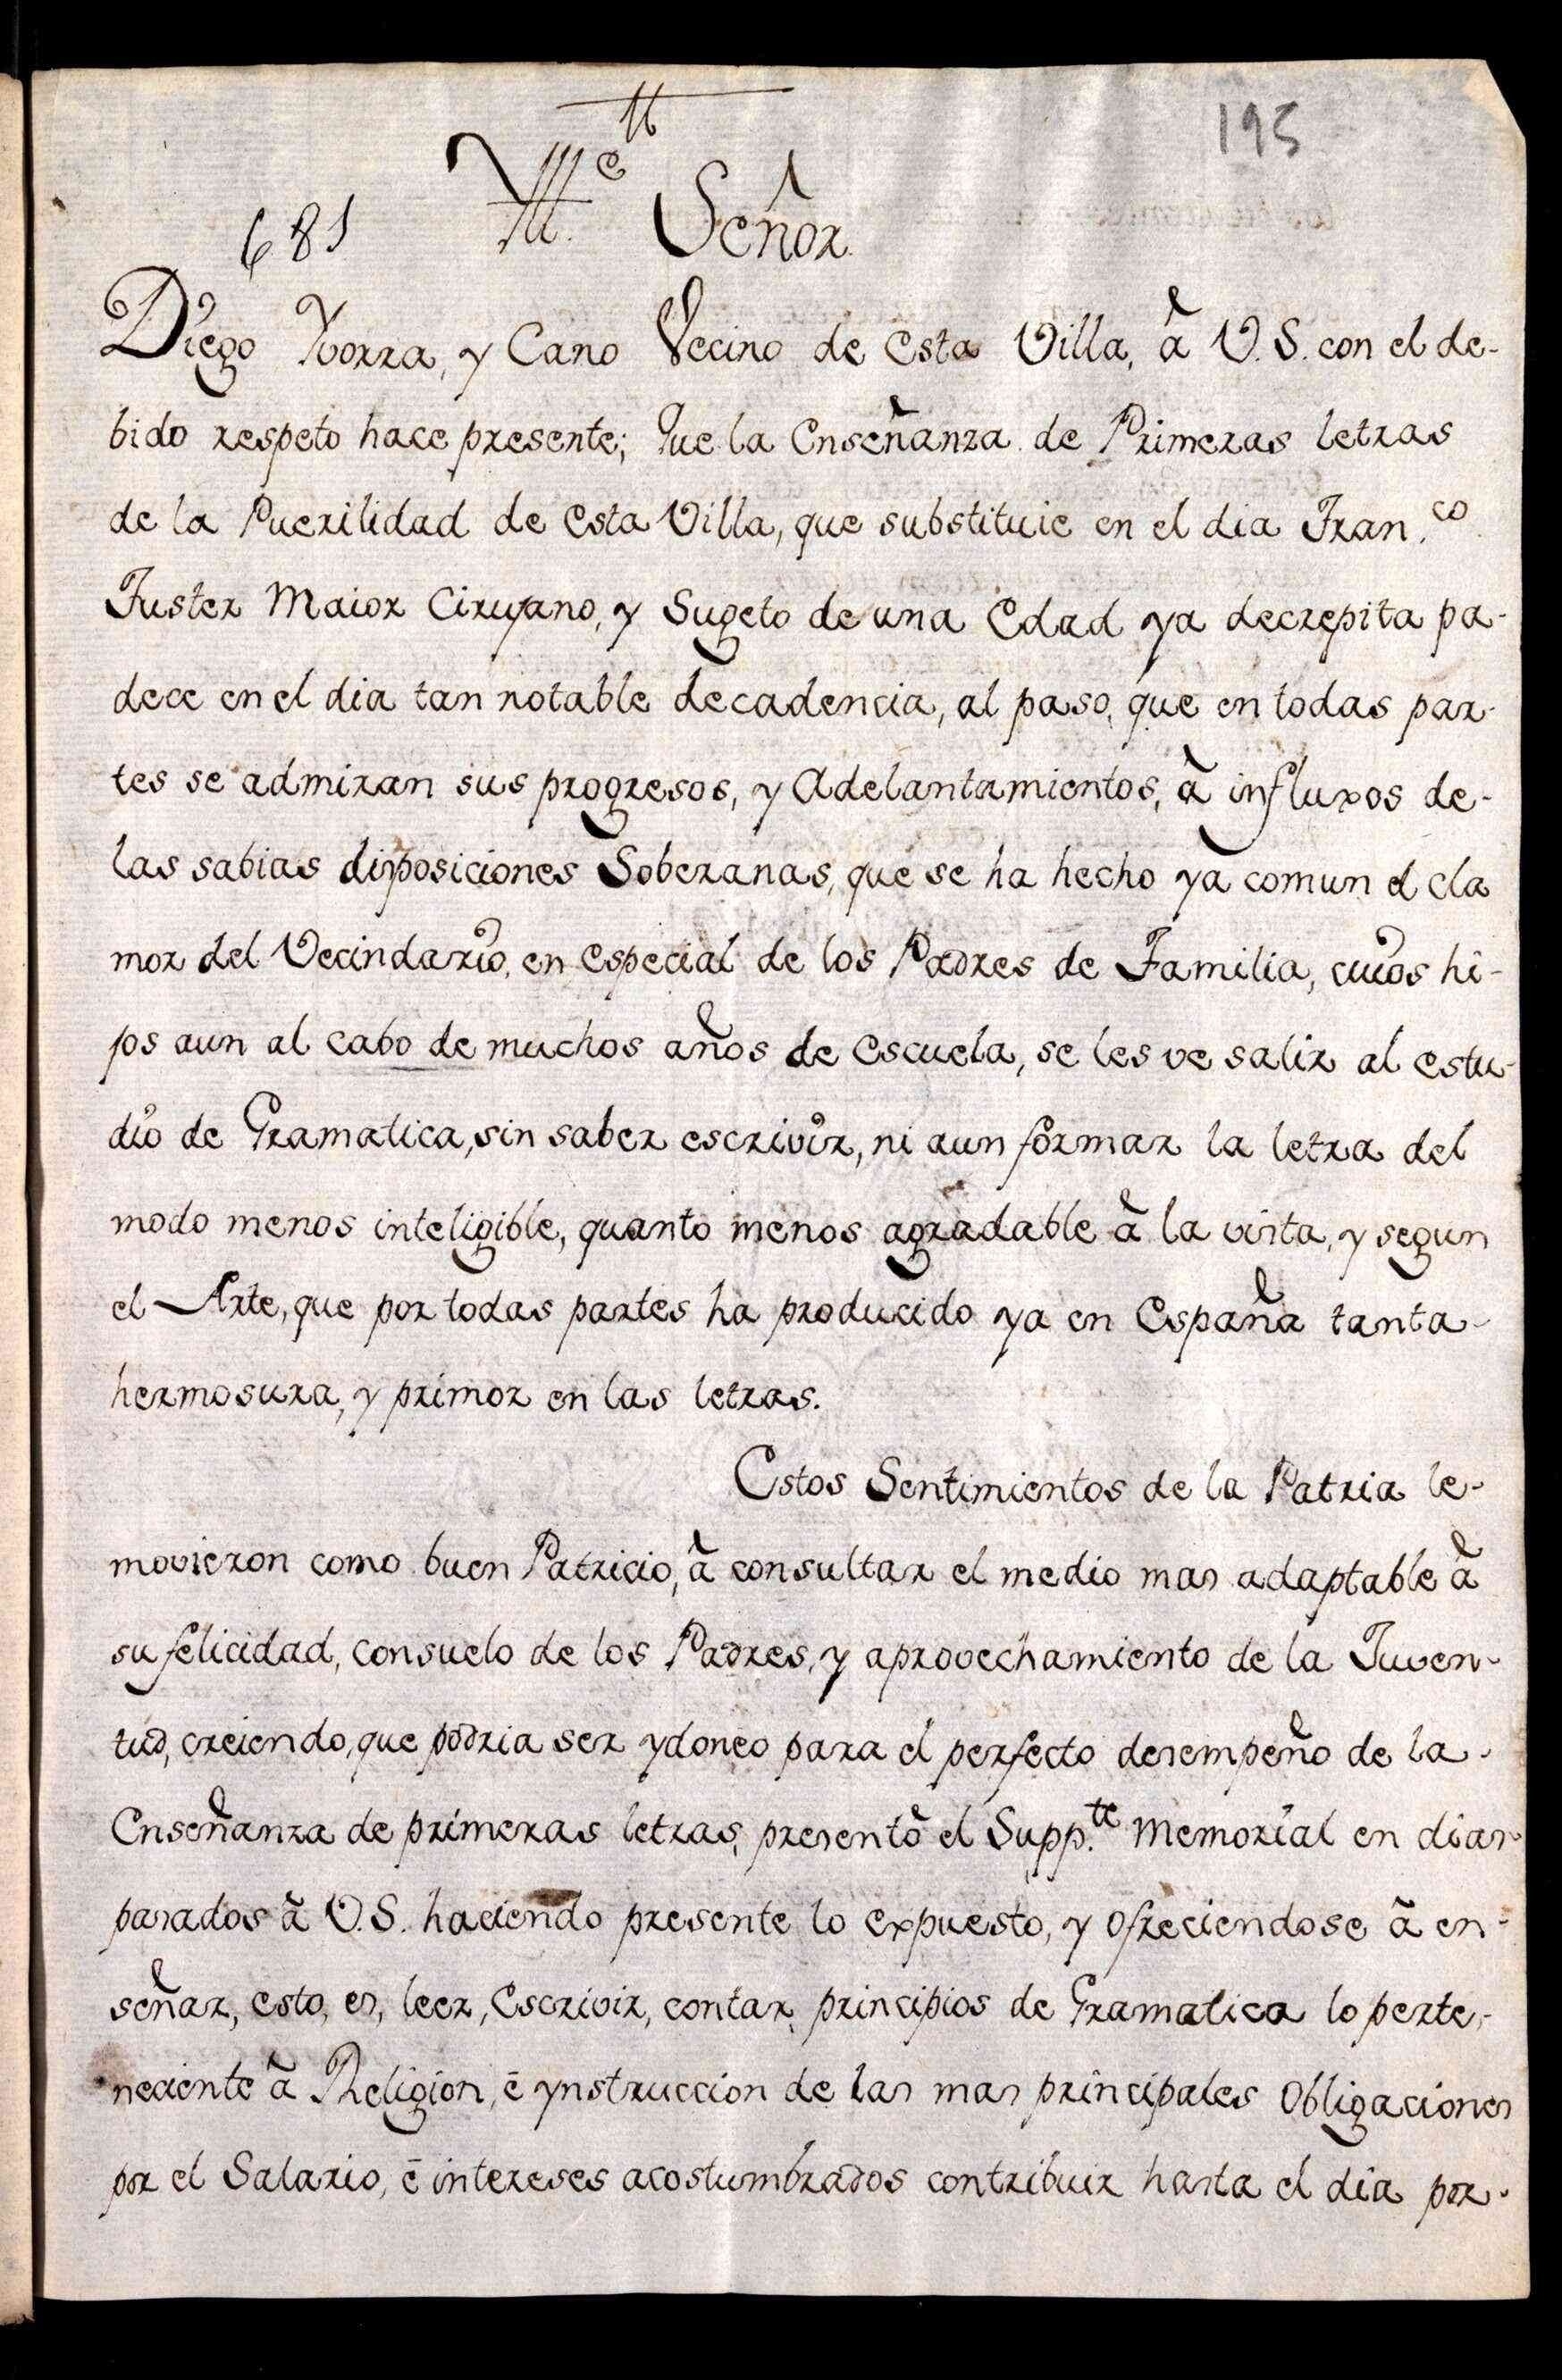 195
681
M.e Señor.
Diego Yvorra, y Cano Vecino de esta Villa, à V.S. con el de-
bido respeto hace presente; Que la Enseñanza de Primeras letras
de la Puerilidad de esta Villa, que substituie en el dia Fran.co
Fuster Maior Cirujano, y Sugeto de una Edad ya decrepita pa-
dece en el dia tan notable decadencia, al paso, que en todas par-
tes se admiran sus progresos, y Adelantamientos, à influxos de-
las sabias disposiciones Soberanas, que se ha hecho ya comun el cla
mor del Vecindario, en especial de los Padres de Familia, cuios hi-
jos aun al cabo de muchos años de escuela, se les ve salir al estu-
dio de Gramatica, sin saber escrivir, ni aun formar la letra del
modo menos inteligible, quanto menos agradable à la vista, y segun
el Arte, que por todas partes ha producido ya en España tanta-
hermosura, y primor en las letras.
Estos Sentimientos de la Patria le-
movieron como buen Patricio, à consultar el medio mas adaptable à
su felicidad, consuelo de los Padres, y aprovechamiento de la Juven-
tud, creiendo, que podria ser ydoneo para el perfecto desempeño de la-
Enseñanza de primeras letras, presentò el Supp.te Memorial en dias-
pasados à V.S. haciendo presente lo expuesto, y ofreciendose à en-
señar, esto, es, leer, Escrivir, contar, principios de Gramatica lo perte-
neciente à Religion, è ynstruccion de las mas principales Obligaciones
por el Salario, è intereses acostumbrados contribuir hasta el dia por-